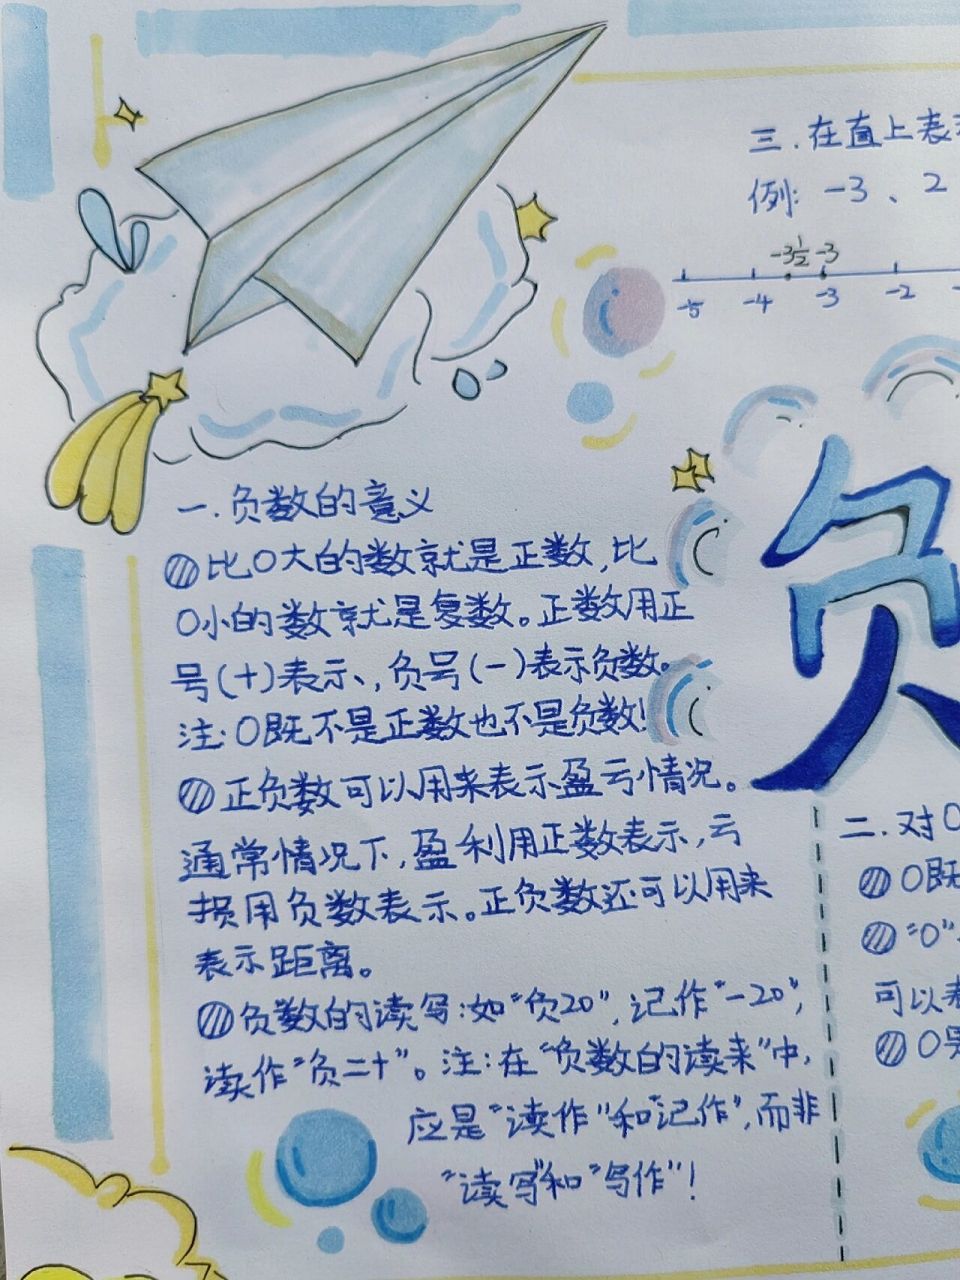 三.在直上表
例: -3、2
-3½ -3
-5 -4 -3 -2
一.负数的意义
比0大的数就是正数,比
0小的数就是复数。正数用正
号(+)表示、,负号(-)表示负数。
注:0既不是正数也不是负数!
正负数可以用来表示盈亏情况。
通常情况下,盈利用正数表示,亏
损用负数表示。正负数还可以用来
表示距离。
负数的读写:如“负20”,记作“-20”,
读作“负二十”。注:在“负数的读来”中,
应是“读作”和“记作”,而非
“读写”和“写作”!
负
二.对0
0既
“0”
可以表
0是